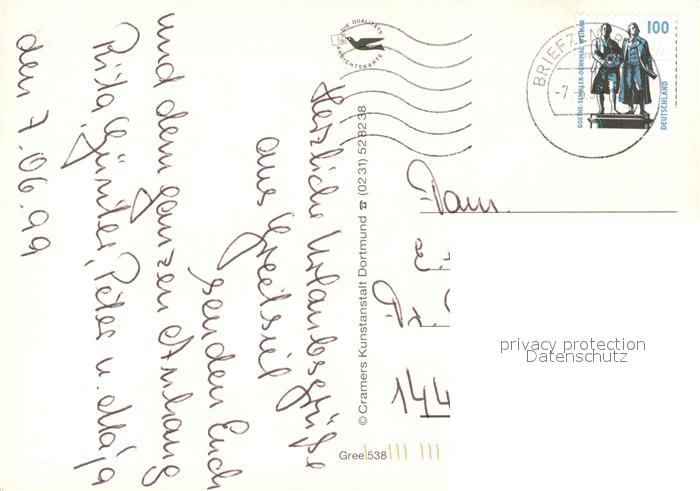 Herzliche Urlaubsgrüße
aus Greetsiel
senden Euch
und dem ganzen Anhang
Rita, Günter, Peter u. Maja
den 7.06.99
DIE QUALITÄTS
ANSICHTSKARTE
© Cramers Kunstanstalt Dortmund ☎ (02 31) 52 82 38
Gree 538
BRIEFZENTR
-7.
GOETHE-SCHILLER-DENKMAL WEIMAR
100
DEUTSCHLAND
Fam.
144
privacy protection
Datenschutz